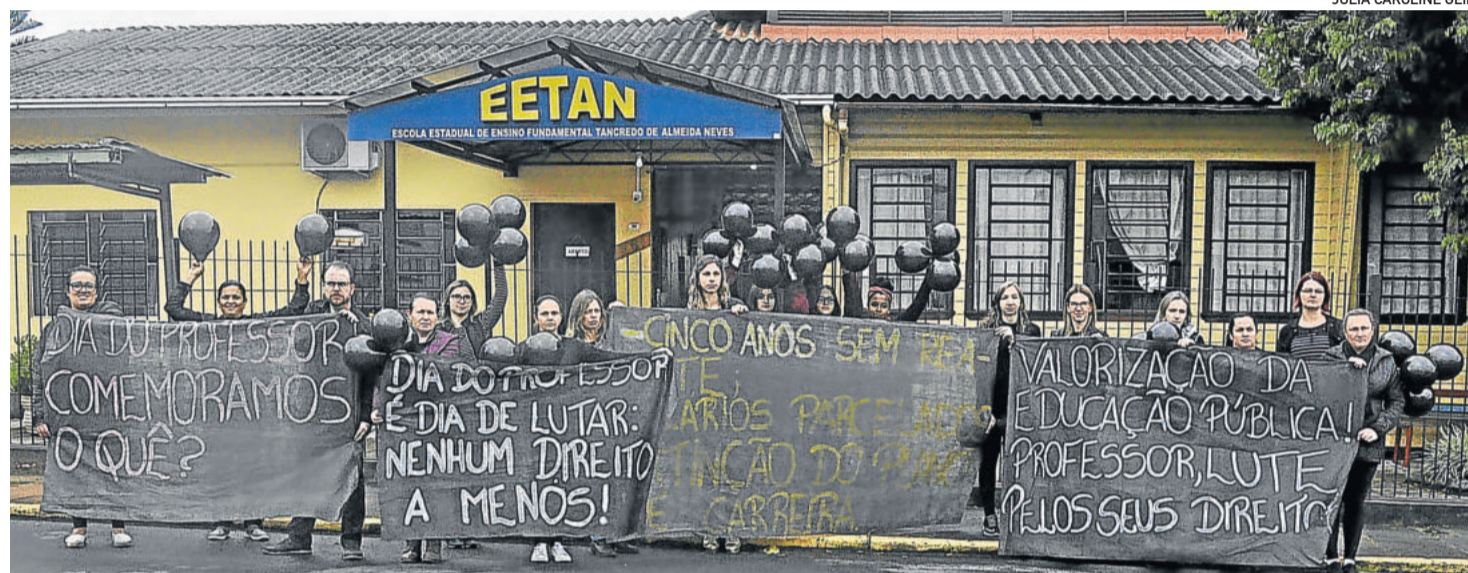 JULIA CAROLINE
EETAN
ESCOLA ESTADUAL DE ENSINO FUNDAMENTAL TANCREDO DE ALMEIDA NEVES
DIA DO PROFESSOR
COMEMORAMOS
O QUÊ?
DIA DO PROFESSOR
É DIA DE LUTAR:
NENHUM DIREITO
A MENOS!
-CINCO ANOS SEM REA-
TE,
ARIOS PARCELADOS
TINÇÃO DO
E CARREIRA
VALORIZAÇAO DA
EDUCAÇÃO PÚBLICA!
PROFESSOR, LUTE
PELOS SEUS DIREITO